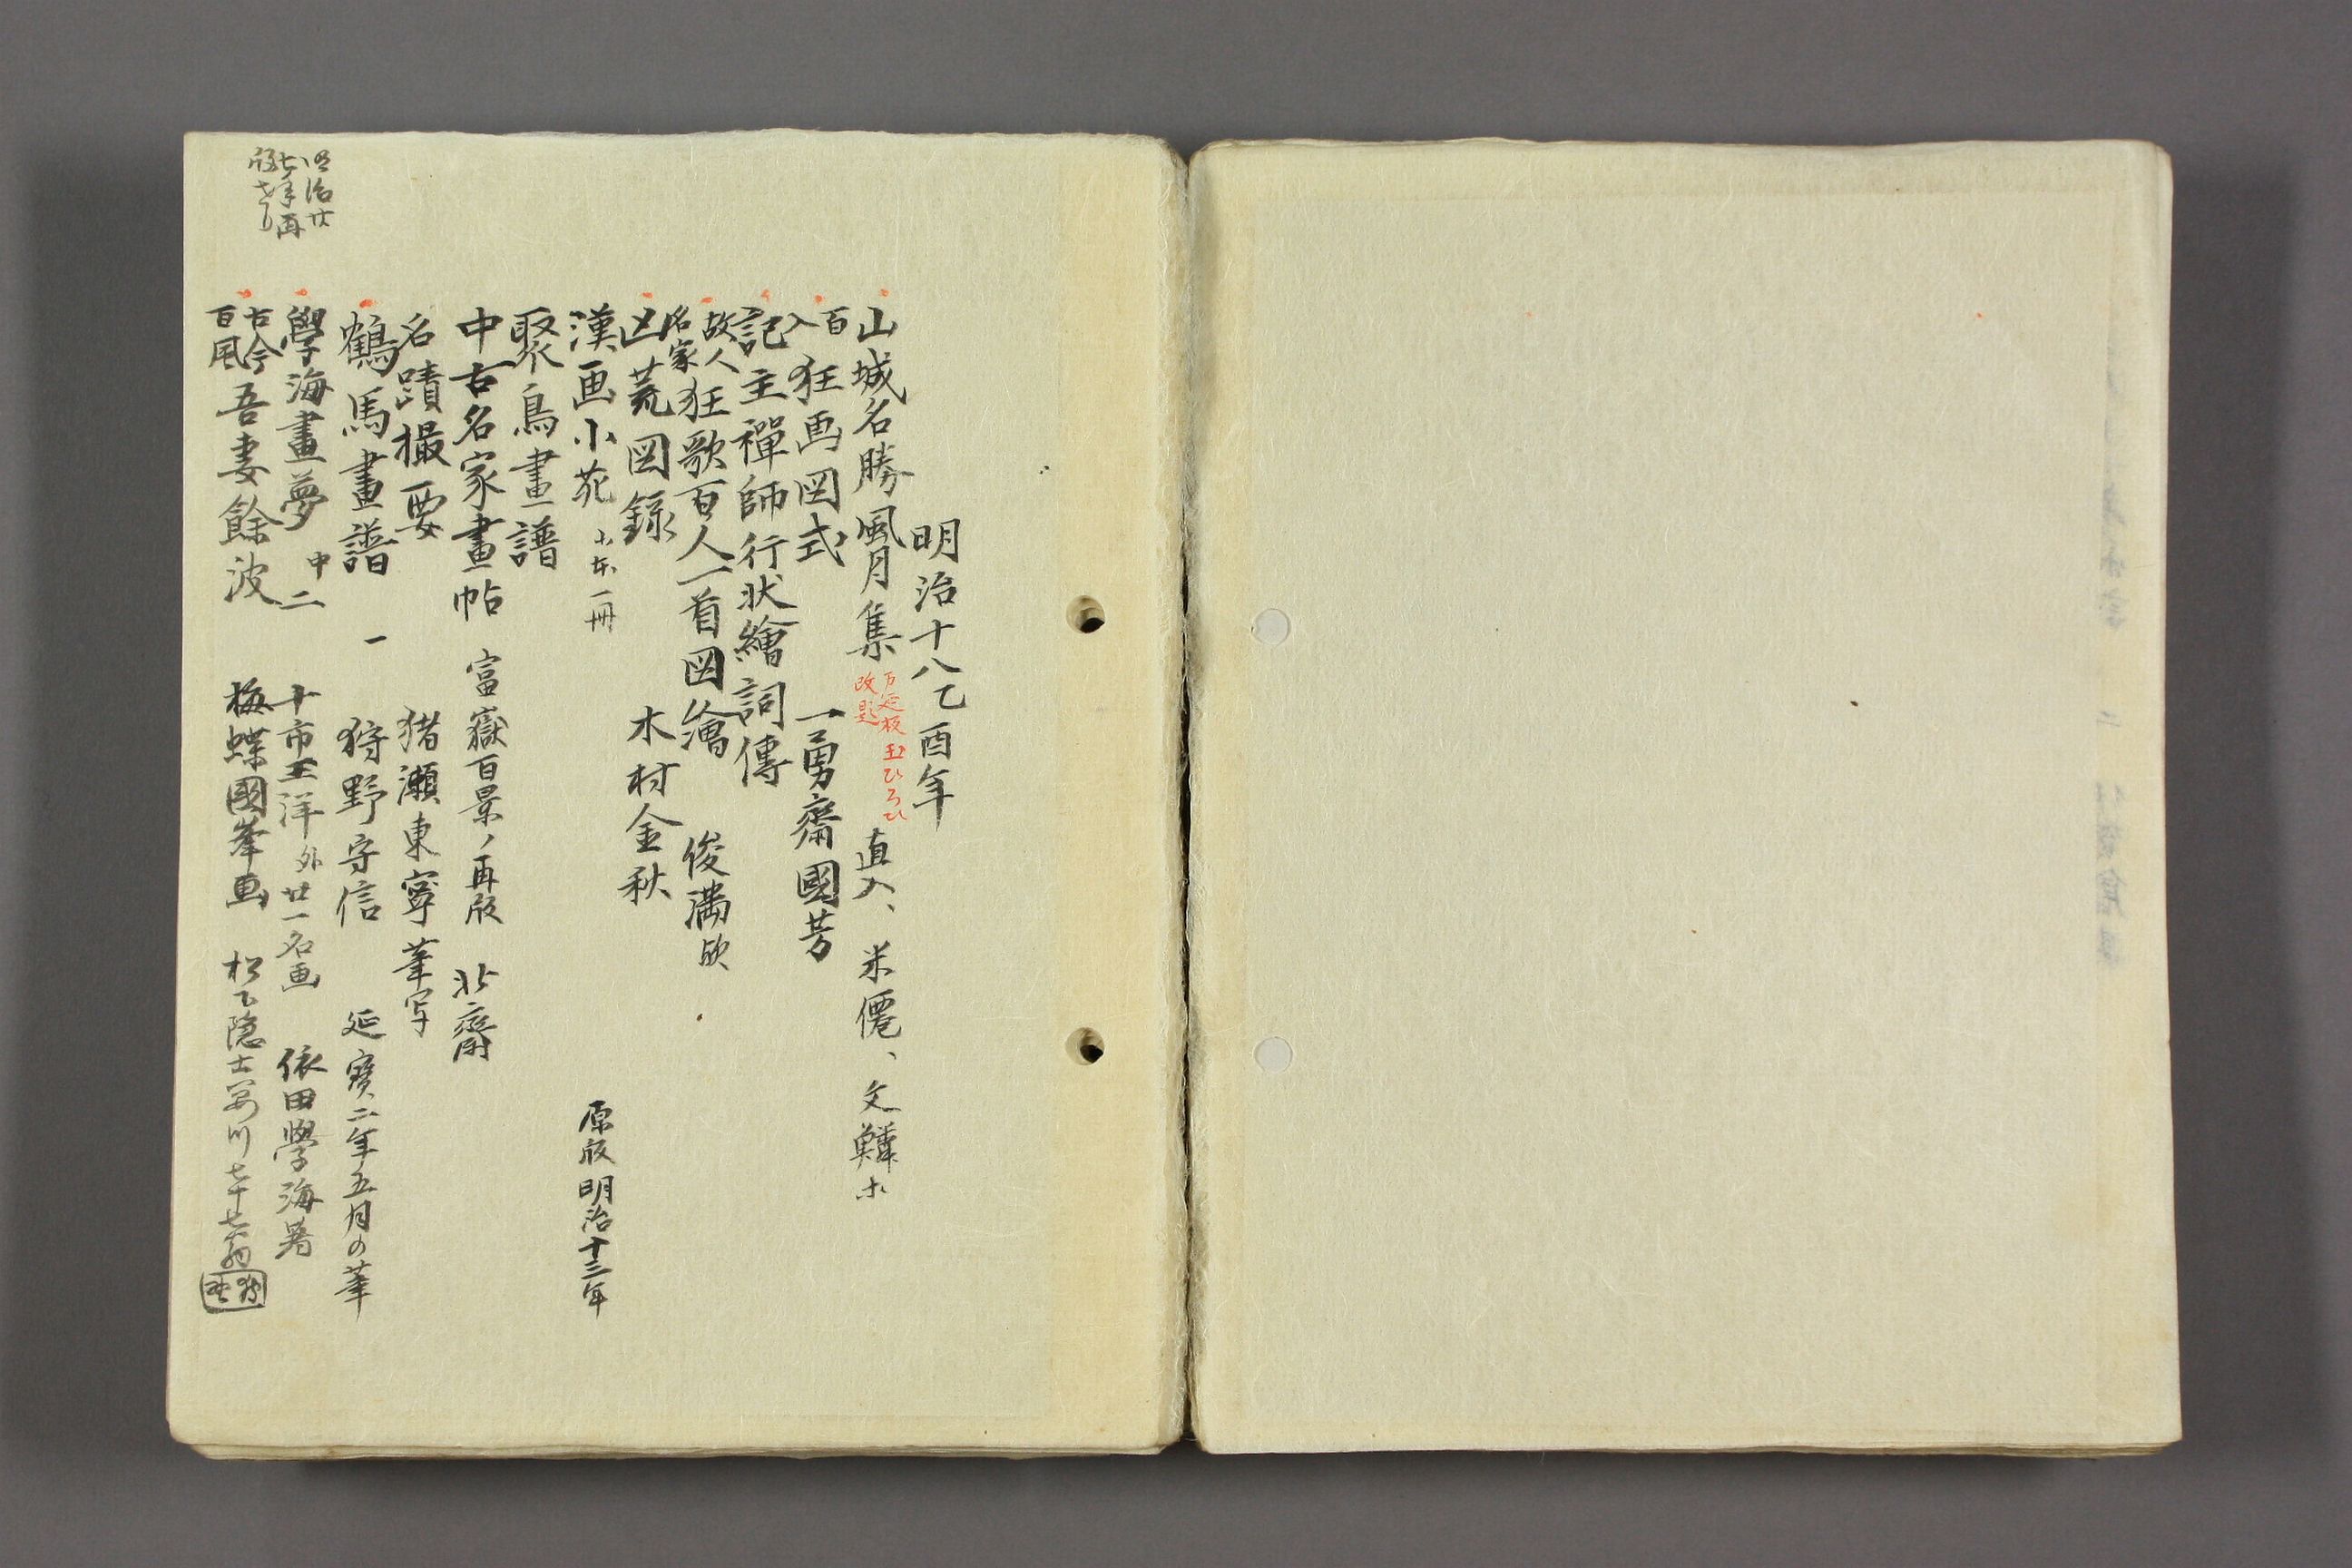 明治十八乙酉年
山城名勝風月集 万延板玉ひろひ改題 直入、米僊、文麟ホ
百人狂画図式 一勇齋國芳
記主禪師行状繪詞傳
故人名家狂歌百人一首図繪 俊満欤
凶荒図録 木村金秋
漢画小苑 小本一冊 原版明治十三年
聚鳥畫譜
中古名家畫帖 富嶽百景ノ再版 北齋
名蹟撮要 猪瀬東寧筆写
鶴馬畫譜 一 狩野守信 延寳二年五月の筆
學海畫夢 中二 十市王洋外廿一名画 依田學海著
古今百風吾妻餘波 梅蝶國峯画
明治廿七年再版きり